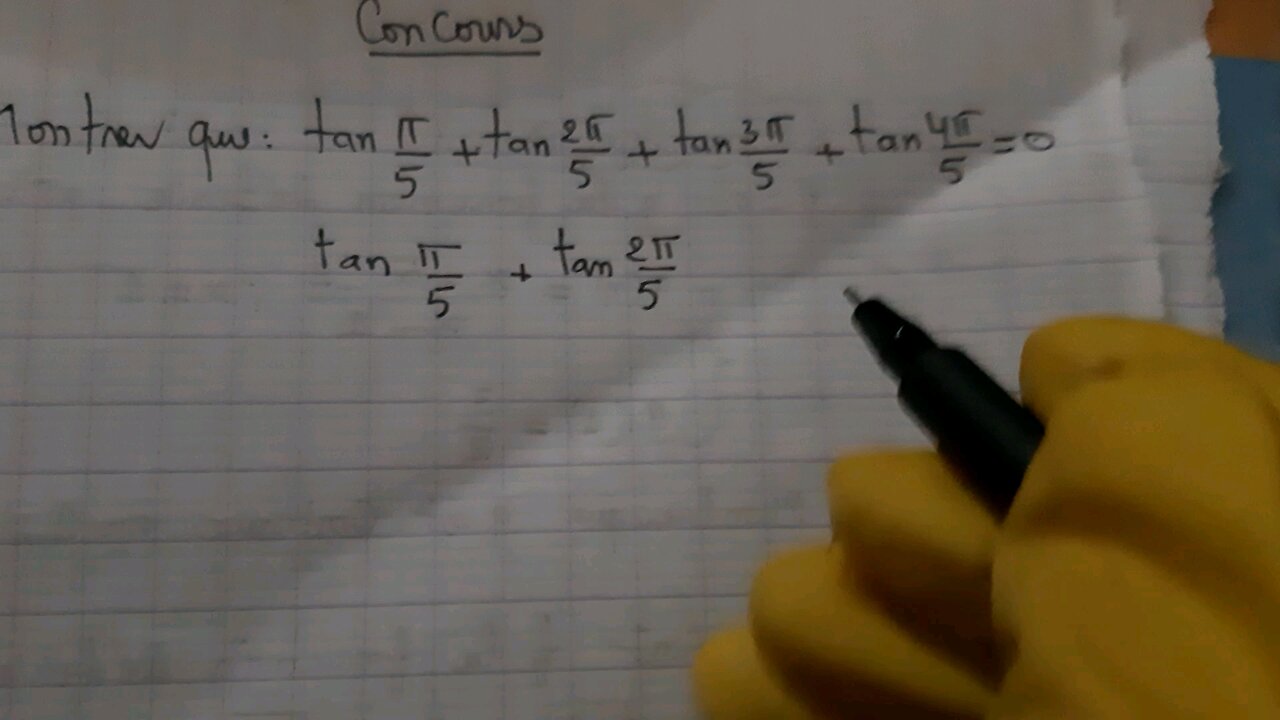 Concours
Montrer que: tan π/5 + tan 2π/5 + tan 3π/5 + tan 4π/5 = 0
tan π/5 + tan 2π/5